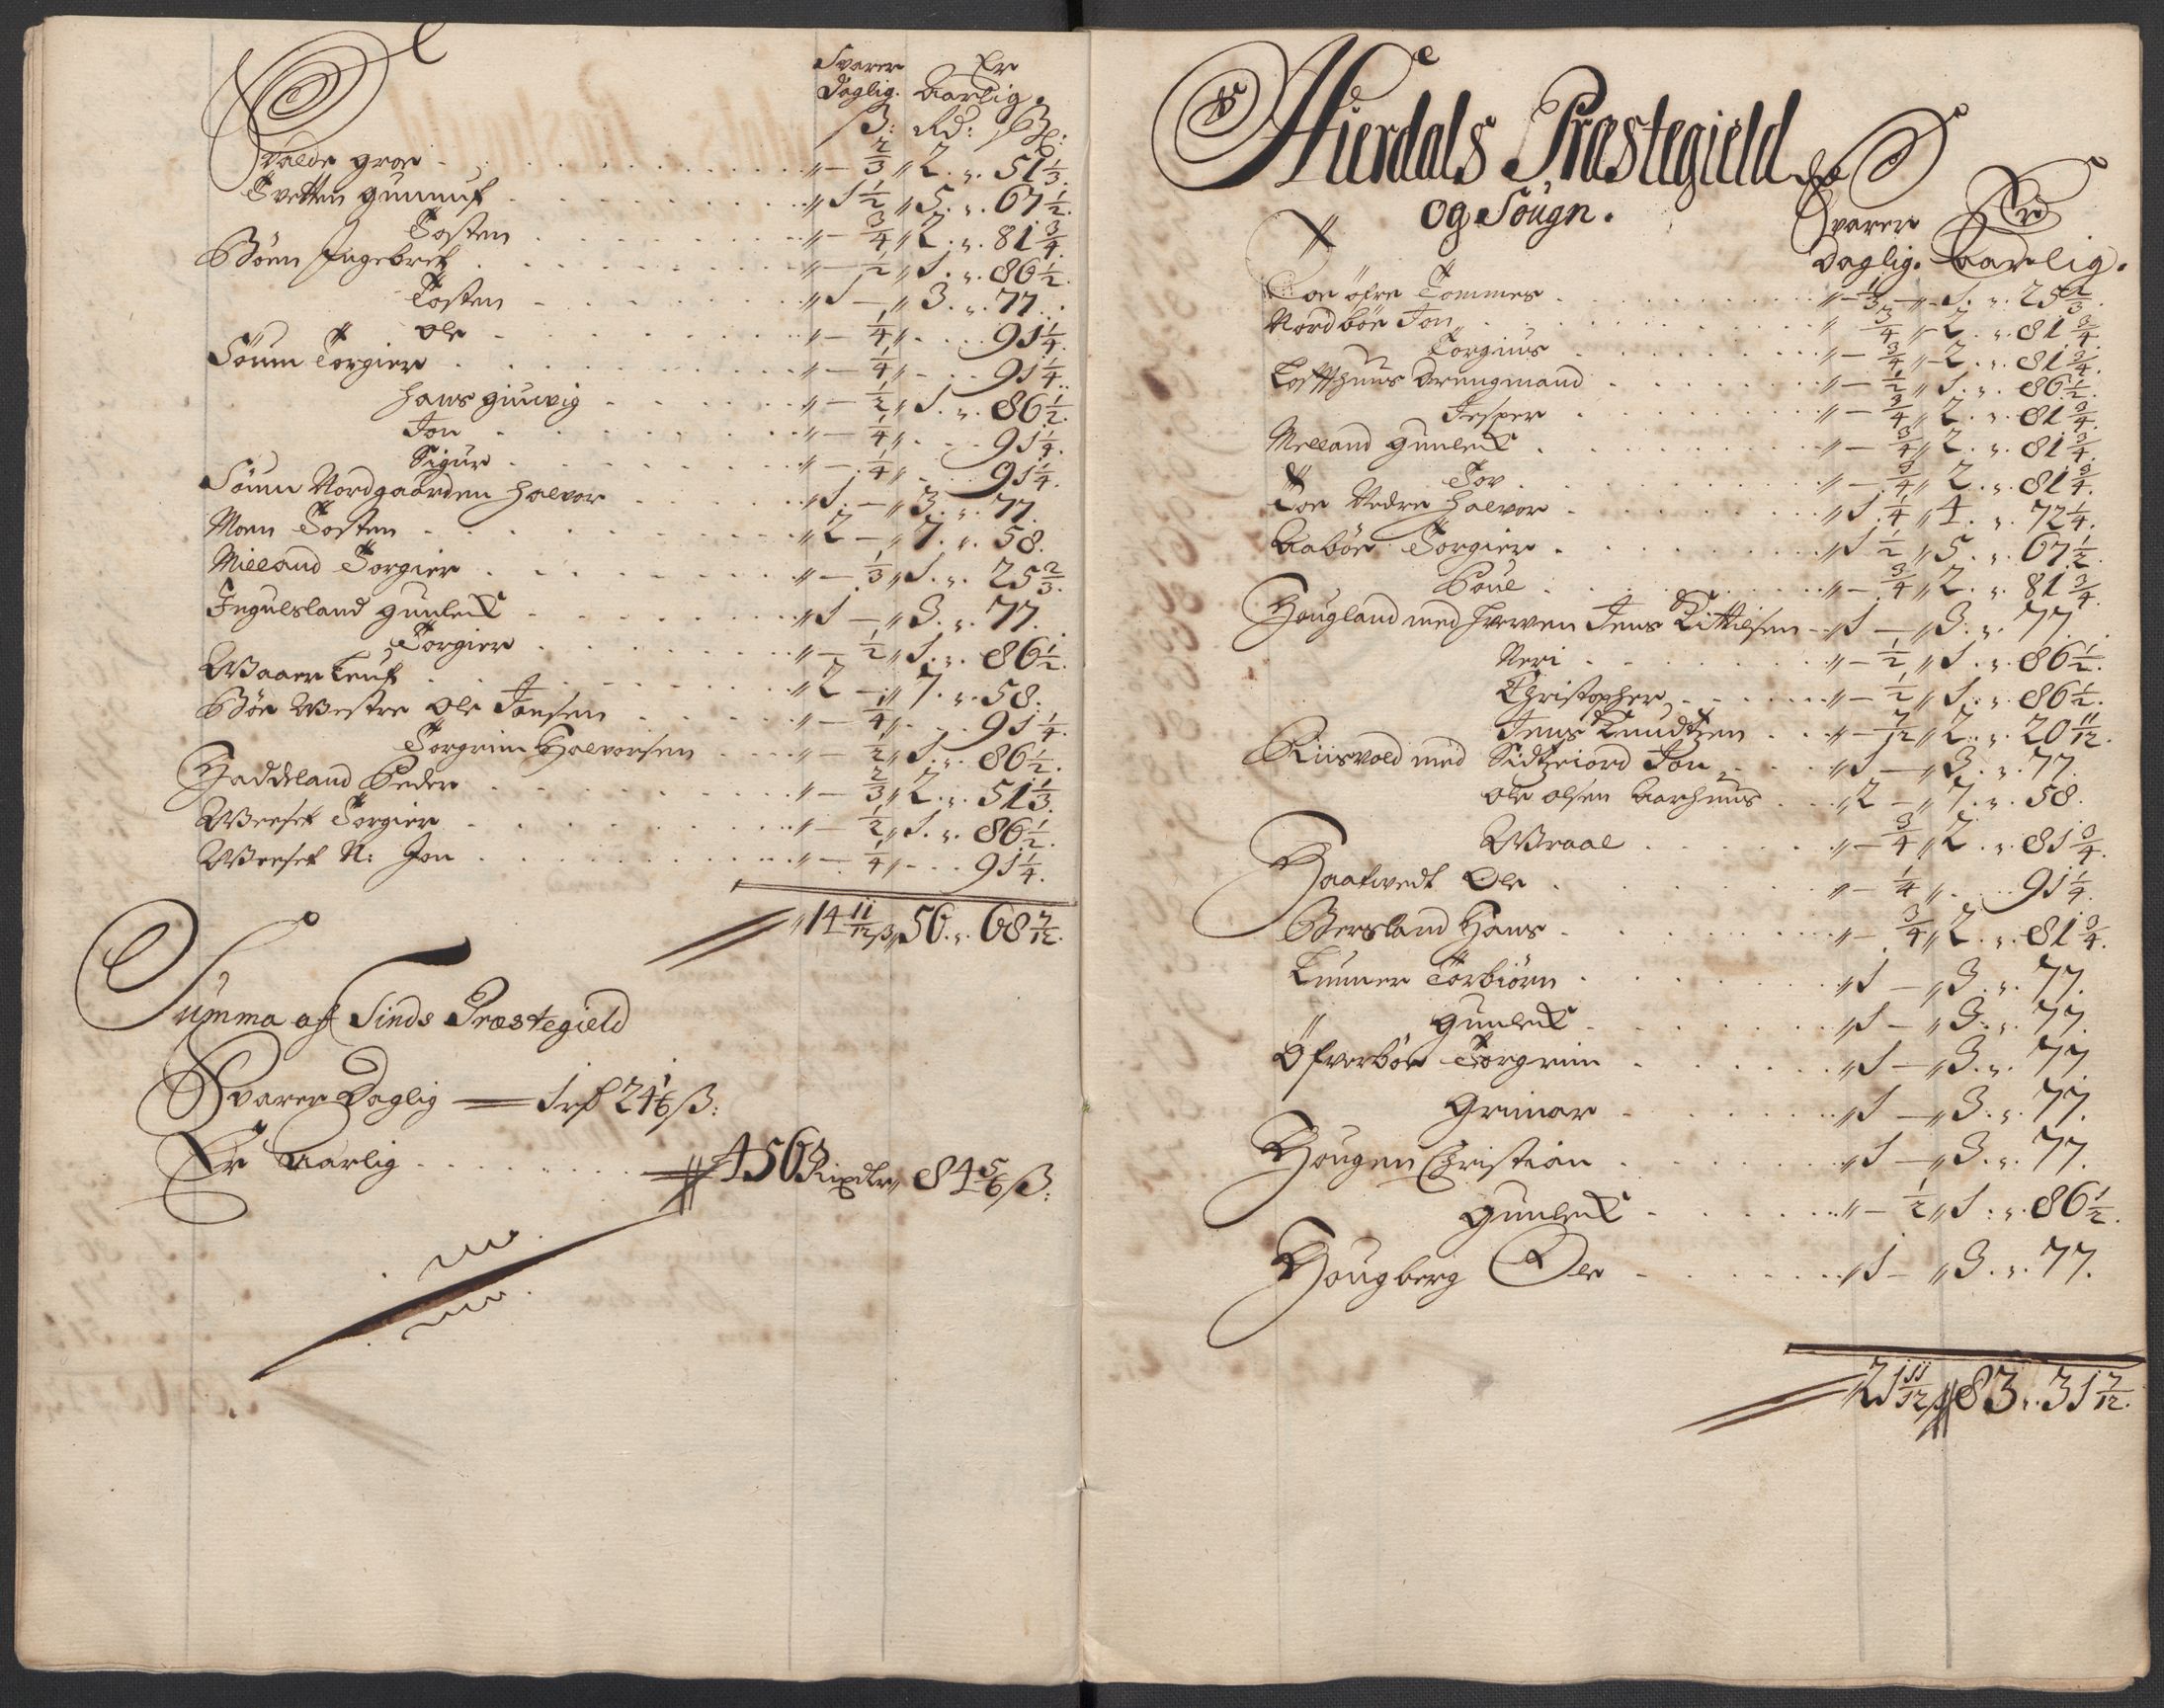 Svarer Er
Daglig. Aarlig.
ß: Rd: ß:
Valde groe - 2/3 2. 51 1/3.
Tvetten gunnuf 1 1/2 5. 67 1/2.
Tosten - 3/4 2. 81 3/4.
Böen Ingebret - 1/2 1. 86 1/2.
Tosten 1 - 3. 77.
Ole - 1/4 - 91 1/4.
Söum Torgier - 1/4 - 91 1/4.
Hans giuvig - 1/2 1. 86 1/2.
Jon - 1/4 - 91 1/4.
Sigur - 1/4 - 91 1/4.
Söum Nordgaarden Halvor 1. - 3. 77.
Moen Tosten 2 - 7. 58.
Mieland Torgier - 1/3 1. 25 2/3.
Ingulsland gunleck 1 - 3. 77.
Torgier - 1/2 1. 86 1/2.
Waaer Leuf 2 - 7. 58.
Böe Westre Ole Jonsen - 1/4 - 91 1/4.
Torgrim Halvorsen - 1/2 1. 86 1/2.
Haddeland Peder - 2/3 2. 51 1/3.
Wersef Torgier - 1/2 1. 86 1/2.
Wersef N: Jon - 1/4 - 91 1/4.
14 11/12 ß 56. 68 7/12.
Summa af Sinds Præstegield
Svarer Daglig — 1 rd 24 1/6 ß:
Er Aarlig 456 Rixdlr 84 5/6 ß:
Hierdals Præstegield
og Sougn.
Svarer Er
Daglig. Aarlig.
Toe öfre Tommes - 1/3 - 1. 25 2/3.
Nordböe Jon 3/4 2. 81 3/4.
Torgius - 3/4 2. 81 3/4.
Loffthuus Drengmand - 1/2 1. 86 1/2.
Jesper - 3/4 2. 81 3/4.
Melland gunleck - 3/4 2. 81 3/4.
Tov - 3/4 2. 81 3/4.
Toe Nedre Halvor 1 1/4 4. 72 1/4.
Aaböe Torgier 1 1/2 5. 67 1/2.
Poul - 3/4 2. 81 3/4.
Hougland med Hverven Jens Kittilsen 1 - 3. 77.
Neri - 1/2 1. 86 1/2.
Christopher - 1/2 1. 86 1/2.
Jens Knudtzen - 7/12 2. 20 11/12.
Riisvold med Sidtzeiord Jon 1 - 3. 77.
Ole Olsen Aarhuus 2 - 7. 58.
Wraal - 3/4 2. 81 3/4.
Haatvedt Ole - 1/4 - 91 1/4.
Bersland Hans - 3/4 2. 81 3/4.
Lunner Torbiörn 1 - 3. 77.
gunleck 1 - 3. 77.
Öfverböe Torgrim 1 - 3. 77.
Grimar 1 - 3. 77.
Hougen Christian 1 - 3. 77.
gunleck - 1/2 1. 86 1/2.
Hougberg Ole 1 - 3. 77.
21 11/12 ß 83. 31 7/12.